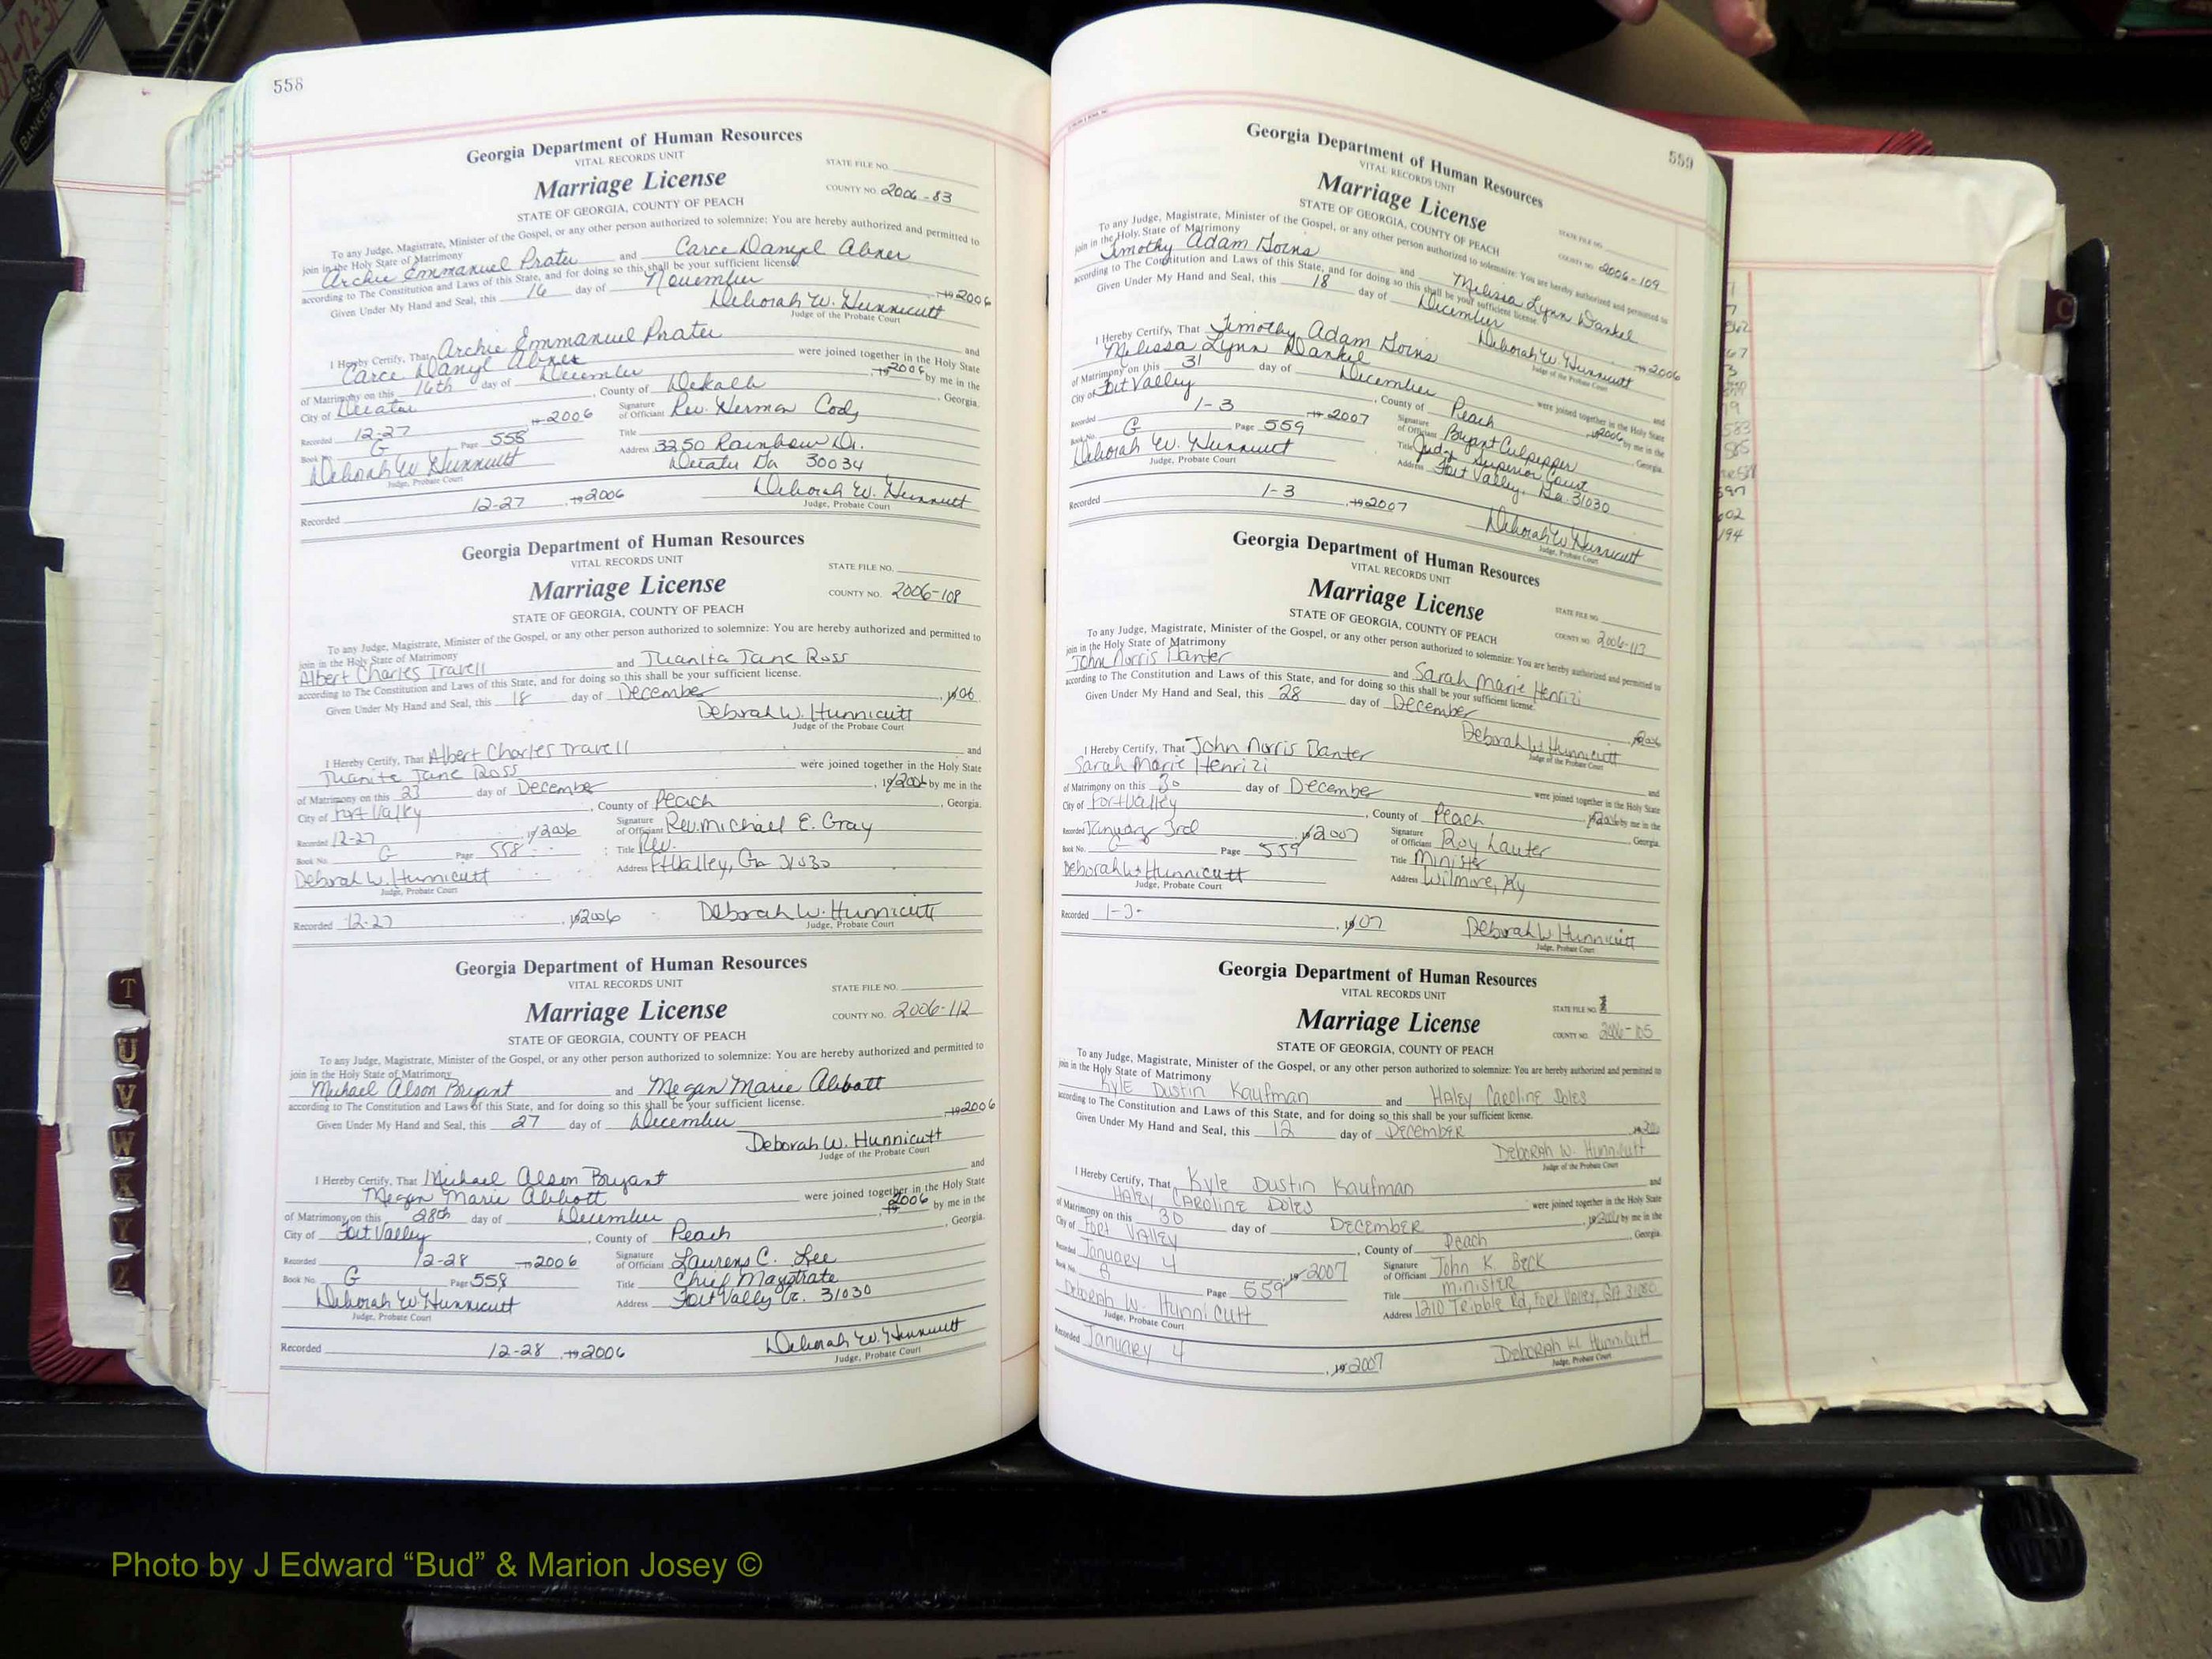 558
Georgia Department of Human Resources
VITAL RECORDS UNIT
STATE FILE NO.
Marriage License
COUNTY NO. 2006-83
STATE OF GEORGIA, COUNTY OF PEACH
To any Judge, Magistrate, Minister of the Gospel, or any other person authorized to solemnize: You are hereby authorized and permitted to
join in the Holy State of Matrimony
Archie Emmanuel Prater and Carce Danyel Abner
according to The Constitution and Laws of this State, and for doing so this shall be your sufficient license.
Given Under My Hand and Seal, this 16 day of November 19 2006
Deborah W. Hunnicutt
Judge of the Probate Court
I Hereby Certify, That Archie Emmanuel Prater and
Carce Danyl Abner were joined together in the Holy State
of Matrimony on this 16th day of December, 19 2006 by me in the
City of Decatur, County of Dekalb, Georgia.
Recorded 12-27, 19 2006 Signature of Officiant Rev. Herman Cody
Book No. G Page 558 Title
Deborah W Hunnicutt Address 3250 Rainbow Dr.
Judge, Probate Court Decatur Ga 30034
Recorded 12-27, 19 2006 Deborah W. Hunnicutt
Judge, Probate Court
Georgia Department of Human Resources
VITAL RECORDS UNIT
STATE FILE NO.
Marriage License
COUNTY NO. 2006-108
STATE OF GEORGIA, COUNTY OF PEACH
To any Judge, Magistrate, Minister of the Gospel, or any other person authorized to solemnize: You are hereby authorized and permitted to
join in the Holy State of Matrimony
Albert Charles Travell and Juanita Jane Ross
according to The Constitution and Laws of this State, and for doing so this shall be your sufficient license.
Given Under My Hand and Seal, this 18 day of December, 19 06
Deborah W. Hunnicutt
Judge of the Probate Court
I Hereby Certify, That Albert Charles Travell and
Juanita Jane Ross were joined together in the Holy State
of Matrimony on this 23 day of December, 19 2006 by me in the
City of Fort Valley, County of Peach, Georgia.
Recorded 12-27, 19 2006 Signature of Officiant Rev. Michael E. Gray
Book No. G Page 558 Title Rev.
Deborah W. Hunnicutt Address Ft Valley, Ga 31030
Judge, Probate Court
Recorded 12-27, 19 2006 Deborah W. Hunnicutt
Judge, Probate Court
Georgia Department of Human Resources
VITAL RECORDS UNIT
STATE FILE NO.
Marriage License
COUNTY NO. 2006-112
STATE OF GEORGIA, COUNTY OF PEACH
To any Judge, Magistrate, Minister of the Gospel, or any other person authorized to solemnize: You are hereby authorized and permitted to
join in the Holy State of Matrimony
Michael Alson Bryant and Megan Marie Abbott
according to The Constitution and Laws of this State, and for doing so this shall be your sufficient license.
Given Under My Hand and Seal, this 27 day of December 19 2006
Deborah W. Hunnicutt
Judge of the Probate Court
I Hereby Certify, That Michael Alson Bryant and
Megan Marie Abbott were joined together in the Holy State
of Matrimony on this 28th day of December, 19 2006 by me in the
City of Fort Valley, County of Peach, Georgia.
Recorded 12-28, 19 2006 Signature of Officiant Laurens C. Lee
Book No. G Page 558 Title Chief Magistrate
Deborah W Hunnicutt Address Fort Valley Ga. 31030
Judge, Probate Court
Recorded 12-28, 19 2006 Deborah W. Hunnicutt
Judge, Probate Court
559
Georgia Department of Human Resources
VITAL RECORDS UNIT
STATE FILE NO.
Marriage License
COUNTY NO. 2006-109
STATE OF GEORGIA, COUNTY OF PEACH
To any Judge, Magistrate, Minister of the Gospel, or any other person authorized to solemnize: You are hereby authorized and permitted to
join in the Holy State of Matrimony
Timothy Adam Goins and Melissa Lynn Dankel
according to The Constitution and Laws of this State, and for doing so this shall be your sufficient license.
Given Under My Hand and Seal, this 18 day of December 19 2006
Deborah W. Hunnicutt
Judge of the Probate Court
I Hereby Certify, That Timothy Adam Goins and
Melissa Lynn Dankel were joined together in the Holy State
of Matrimony on this 31 day of December, 19 2006 by me in the
City of Fort Valley, County of Peach, Georgia.
Recorded 1-3, 19 2007 Signature of Officiant Bryant Culpepper
Book No. G Page 559 Title Judge Superior Court
Deborah W. Hunnicutt Address Fort Valley, Ga. 31030
Judge, Probate Court
Recorded 1-3, 19 2007 Deborah W Hunnicutt
Judge, Probate Court
Georgia Department of Human Resources
VITAL RECORDS UNIT
STATE FILE NO.
Marriage License
COUNTY NO. 2006-113
STATE OF GEORGIA, COUNTY OF PEACH
To any Judge, Magistrate, Minister of the Gospel, or any other person authorized to solemnize: You are hereby authorized and permitted to
join in the Holy State of Matrimony
John Norris Danter and Sarah Marie Henrizi
according to The Constitution and Laws of this State, and for doing so this shall be your sufficient license.
Given Under My Hand and Seal, this 28 day of December, 2006
Deborah W Hunnicutt
Judge of the Probate Court
I Hereby Certify, That John Norris Danter and
Sarah Marie Henrizi were joined together in the Holy State
of Matrimony on this 30 day of December, 19 2006 by me in the
City of Fort Valley, County of Peach, Georgia.
Recorded January 3rd, 19 2007 Signature of Officiant Roy Lauter
Book No. G Page 559 Title Minister
Deborah W Hunnicutt Address Wilmore, Ky
Judge, Probate Court
Recorded 1-3-, 19 07 Deborah W Hunnicutt
Judge, Probate Court
Georgia Department of Human Resources
VITAL RECORDS UNIT
STATE FILE NO.
Marriage License
COUNTY NO. 2006-105
STATE OF GEORGIA, COUNTY OF PEACH
To any Judge, Magistrate, Minister of the Gospel, or any other person authorized to solemnize: You are hereby authorized and permitted to
join in the Holy State of Matrimony
Kyle Dustin Kaufman and Haley Caroline Doles
according to The Constitution and Laws of this State, and for doing so this shall be your sufficient license.
Given Under My Hand and Seal, this 12 day of December
Deborah W. Hunnicutt
Judge of the Probate Court
I Hereby Certify, That Kyle Dustin Kaufman and
Haley Caroline Doles were joined together in the Holy State
of Matrimony on this 30 day of December, 19 2006 by me in the
City of Fort Valley, County of Peach, Georgia.
Recorded January 4, 19 2007 Signature of Officiant John K. Beck
Book No. G Page 559 Title Minister
Deborah W. Hunnicutt Address 1210 Tribble Rd, Fort Valley, GA
Judge, Probate Court
Recorded January 4, 19 2007 Deborah W Hunnicutt
Judge, Probate Court
T
U
V
W
X
Y
Z
C
583
585
597
602
194
Photo by J Edward “Bud” & Marion Josey ©